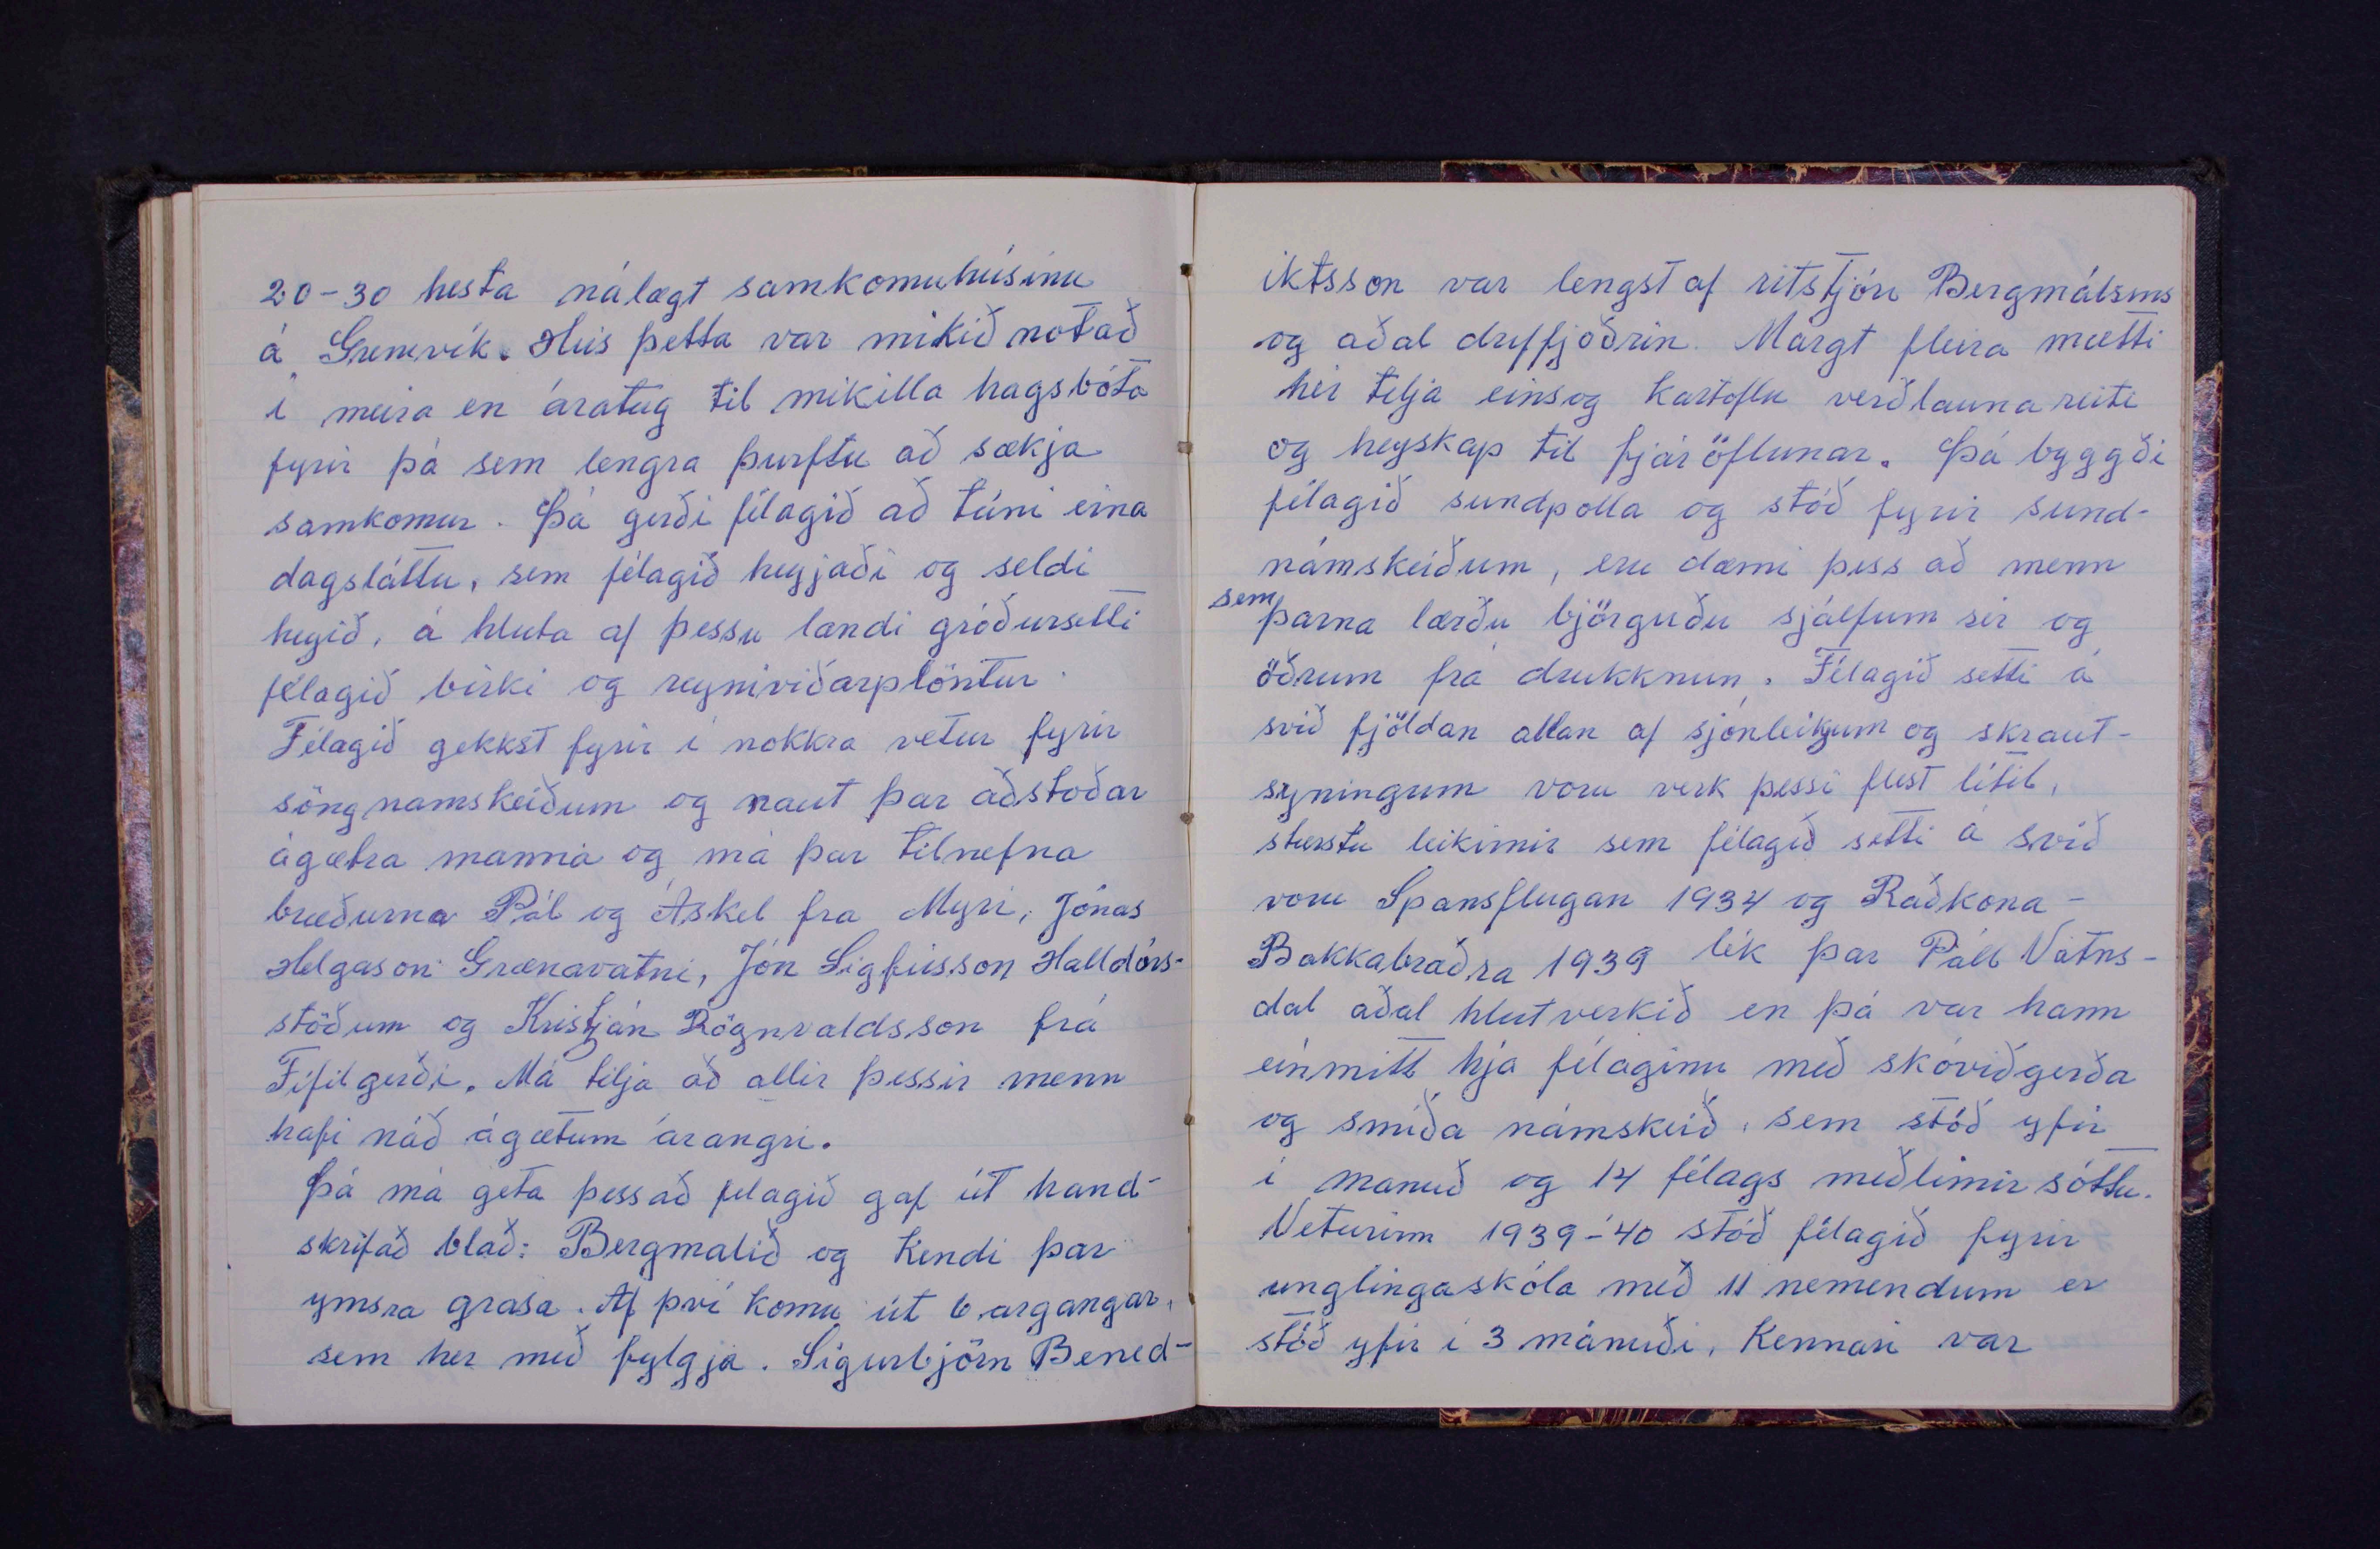 20-30 hesta nálægt samkomuhúsinu
á Grenivík. Hús þetta var mikið notað
í meira en áratug til mikilla hagsbóta
fyrir þá sem lengra þurftu að sækja
samkomur. Þá gerði félagið að túni eina
dagsláttu, sem félagið heyjaði og seldi
heyið, á hluta af þessu landi gróðursetti
félagið birki og reyniviðarplöntur.
Félagið gekkst fyrir í nokkra vetur fyrir
söngnamskeiðum og naut þar aðstoðar
ágætra manna og má þar tilnefna
bræðurna Pál og Áskel fra Myri, Jónas
Helgason Grænavatni, Jón Sigfússon Halldórs-
stöðum og Kristján Rögnvaldsson frá
Fífilgerði. Má telja að allir þessir menn
hafi náð ágætum árangri.
Þá má geta þess að felagið gaf út hand-
skrifað blað: Bergmalið og Kendi þar
ymsra grasa. Af því komu út 6 argangar,
sem her með fylgja. Sigurbjörn Bened-
iktsson var lengst af ritstjóri Bergmálsins
og aðal driffjöðrin. Margt fleira mætti
hér telja einsog Kartoflu verðlauna reiti
og heyskap til fjáröflunar. Þá byggði
félagið sundpolla og stóð fyrir sund-
námskeiðum, eru dæmi þess að menn
sem þarna lærðu björguðu sjálfum sér og
öðrum frá drukknun. Félagið setti á
svið fjöldan allan af sjónleikjum og skraut-
syningum voru verk þessi flest lítil,
stærstu leikirnir sem félagið setti á svið
voru Spansflugan 1934 og Ráðkona-
Bakkabræðra 1939 lék þar Páll Vatns-
dal aðal hlutverkið en þá var hann
einmitt hjá félaginu með skóviðgerða
og smíða námskeið, sem stóð yfir
í manuð og 14 félags meðlimir sóttu.
Veturinn 1939-'40 stóð félagið fyrir
unglingaskóla með 11 nemendum er
stóð yfir í 3 mánuði, Kennari var